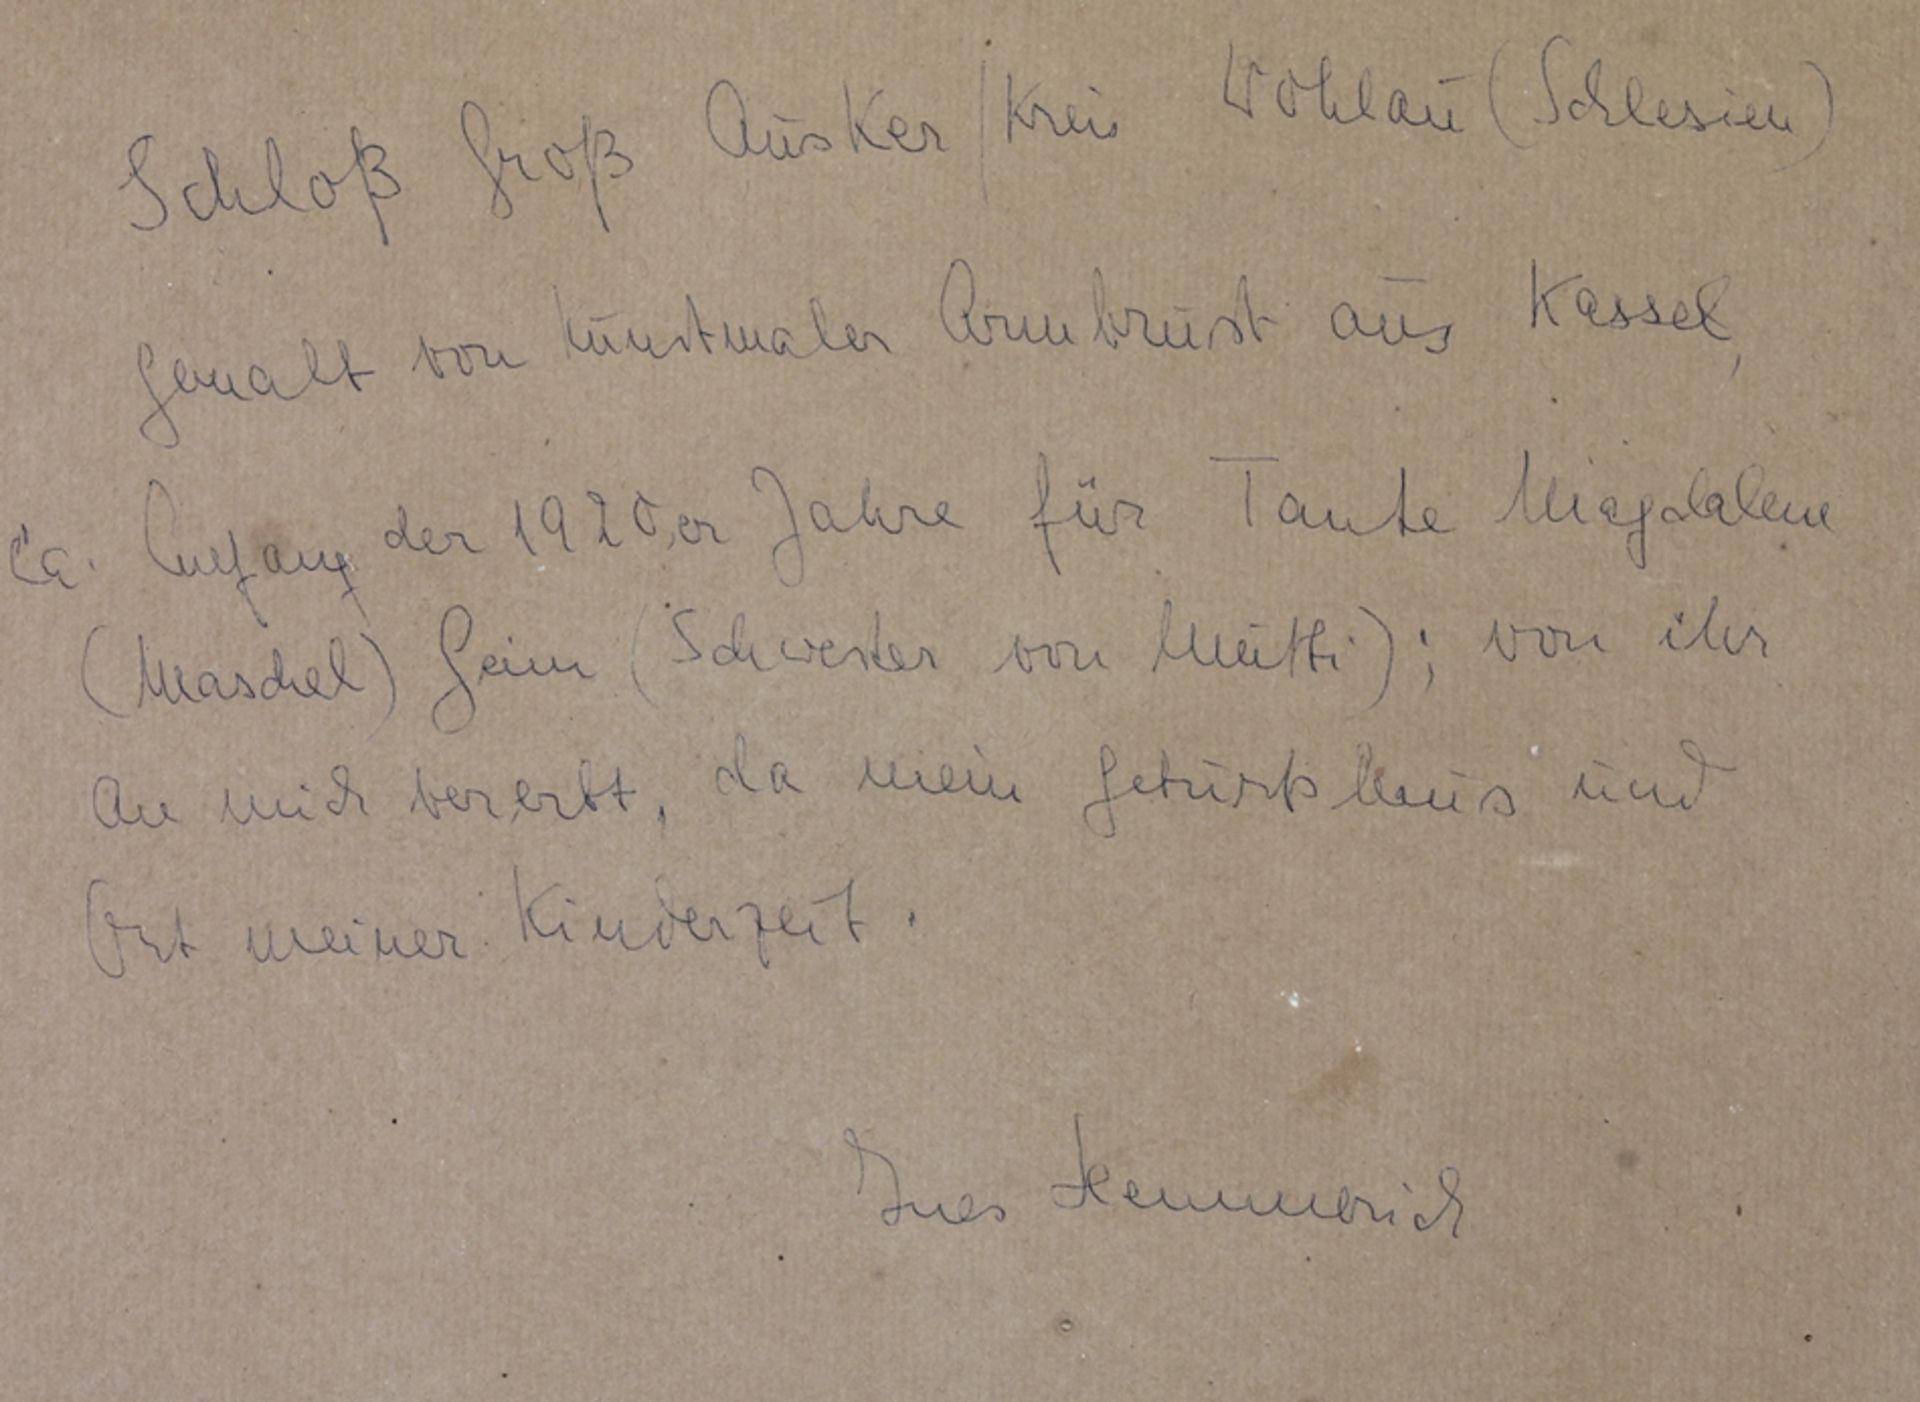 Schloß Groß Ausker / Kreis Wohlau (Schlesien)
gemalt von Kunstmaler Armbrust aus Kassel,
ca. Anfang der 1920,er Jahre für Tante Magdalene
(Maschel) Geim (Schwester von Mutti); von ihr
an mich vererbt, da mein Geburtshaus und
Ort meiner Kinderzeit.
Ines Hemmerich